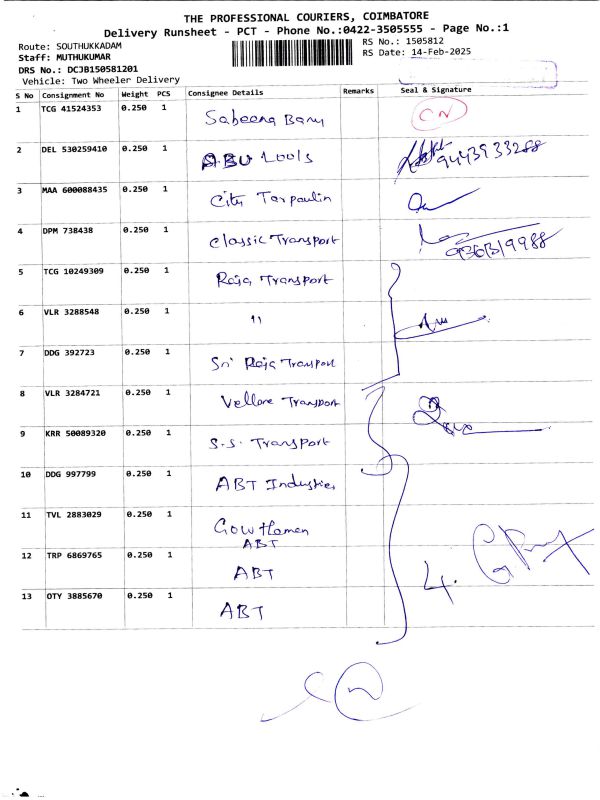 THE PROFESSIONAL COURIERS, COIMBATORE
Delivery Runsheet - PCT - Phone No.:0422-3505555 - Page No.:1
Route: SOUTHUKKADAM
RS No.: 1505812
Staff: MUTHUKUMAR
RS Date: 14-Feb-2025
DRS No.: DCJB150581201
Vehicle: Two Wheeler Delivery
S No Consignment No Weight PCS Consignee Details Remarks Seal & Signature
1 TCG 41524353 0.250 1 Sabeena Banu CN
2 DEL 530259410 0.250 1 ABU Lools 9443933288
3 MAA 600088435 0.250 1 City Tarpaulin
4 DPM 738438 0.250 1 Classic Transport
5 TCG 10249309 0.250 1 Raja Transport
6 VLR 3288548 0.250 1 11
7 DDG 392723 0.250 1 Sri Raja Transport
8 VLR 3284721 0.250 1 Vellore Transport
9 KRR 50089320 0.250 1 S.S. Transport
10 DDG 997799 0.250 1 ABT Industries
11 TVL 2883029 0.250 1 Gowthaman
ABT
12 TRP 6869765 0.250 1 ABT
13 OTY 3885670 0.250 1 ABT